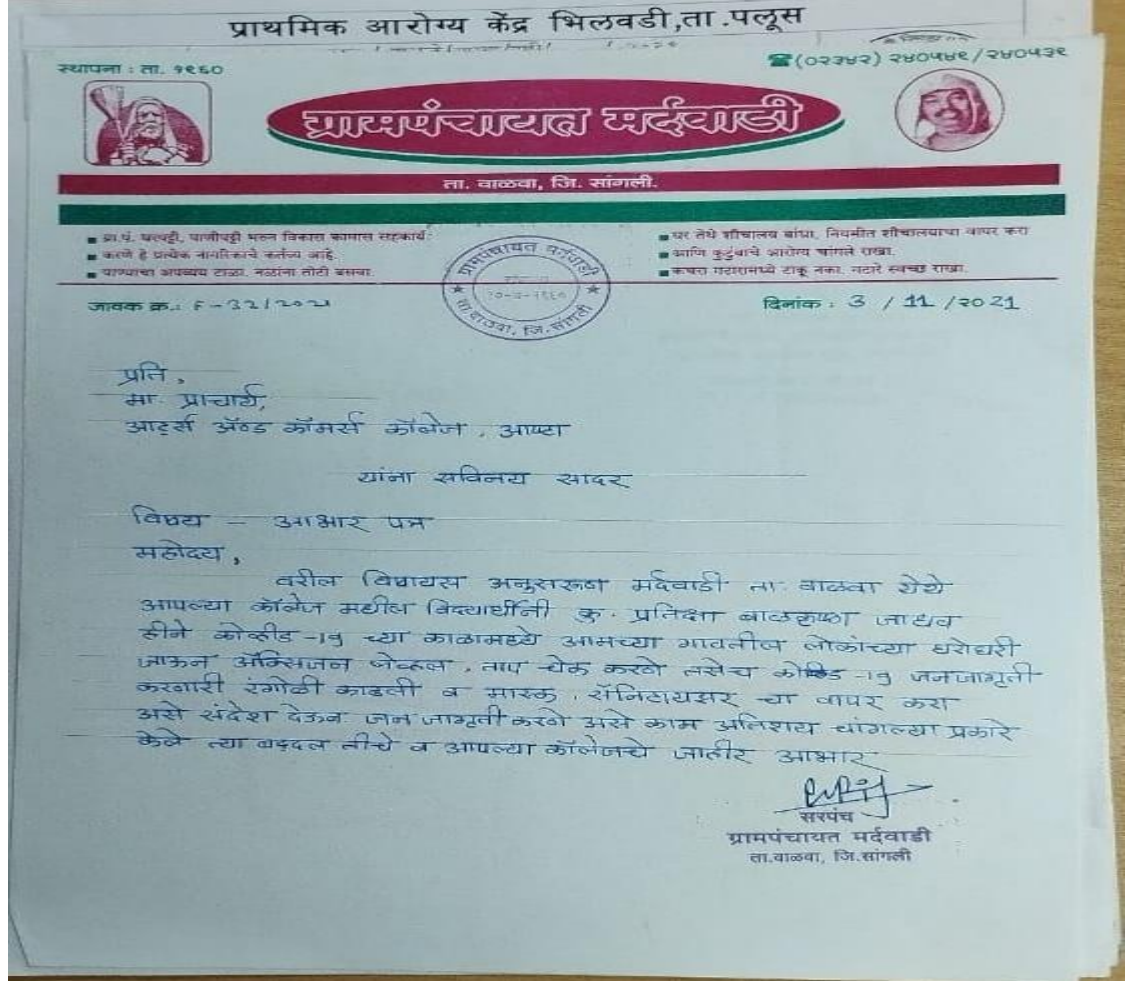 प्राथमिक आरोग्य केंद्र भिलवडी,ता.पलूस
स्थापना : ता. १९६०
☎(०२३४२) २४०५४९/२४०५३९
ग्रामपंचायत मर्दवाडी
ता. वाळवा, जि. सांगली.
■ ग्रा.पं. घरपट्टी, पाणीपट्टी भरुन विकास कामास सहकार्य
■ करणे हे प्रत्येक नागरिकाचे कर्तव्य आहे.
■ पाण्याचा अपव्यय टाळा. नळांना तोटी बसवा.
■ घर तेथे शौचालय बांधा, नियमीत शौचालयाचा वापर करा
■ आणि कुटुंबाचे आरोग्य चांगले राखा.
■ कचरा गटारामध्ये टाकू नका. गटारे स्वच्छ राखा.
ग्रामपंचायत मर्दवाडी
ता.वाळवा, जि.सांगली
जावक क्र.: F-32/2021
दिनांक : 3 / 11 /२०21
प्रति,
मा. प्राचार्य,
आर्ट्स अॅण्ड कॉमर्स कॉलेज, आष्टा
यांना सविनय सादर
विषय - आभार पत्र
महोदय,
वरील विषयास अनुसरूण मर्दवाडी ता. वाळवा येथे
आपल्या कॉलेज मधील विद्यार्थीनी कु. प्रतिक्षा बाळकृष्णा जाधव
हीने कोव्हीड -19 च्या काळामध्ये आमच्या गावतील लोकांच्या घरोघरी
जाऊन ऑक्सिजन लेव्हल, ताप चेक करणे तसेच कोव्हिड -19 जनजागृती
करणारी रंगोळी काढली व मास्क, सॅनिटायझर चा वापर करा
असे संदेश देऊन जन जागृती करणे असे काम अतिशय चांगल्या प्रकारे
केले त्या बद्दल तीचे व आपल्या कॉलेजचे जाहीर आभार
सरपंच
ग्रामपंचायत मर्दवाडी
ता.वाळवा, जि.सांगली